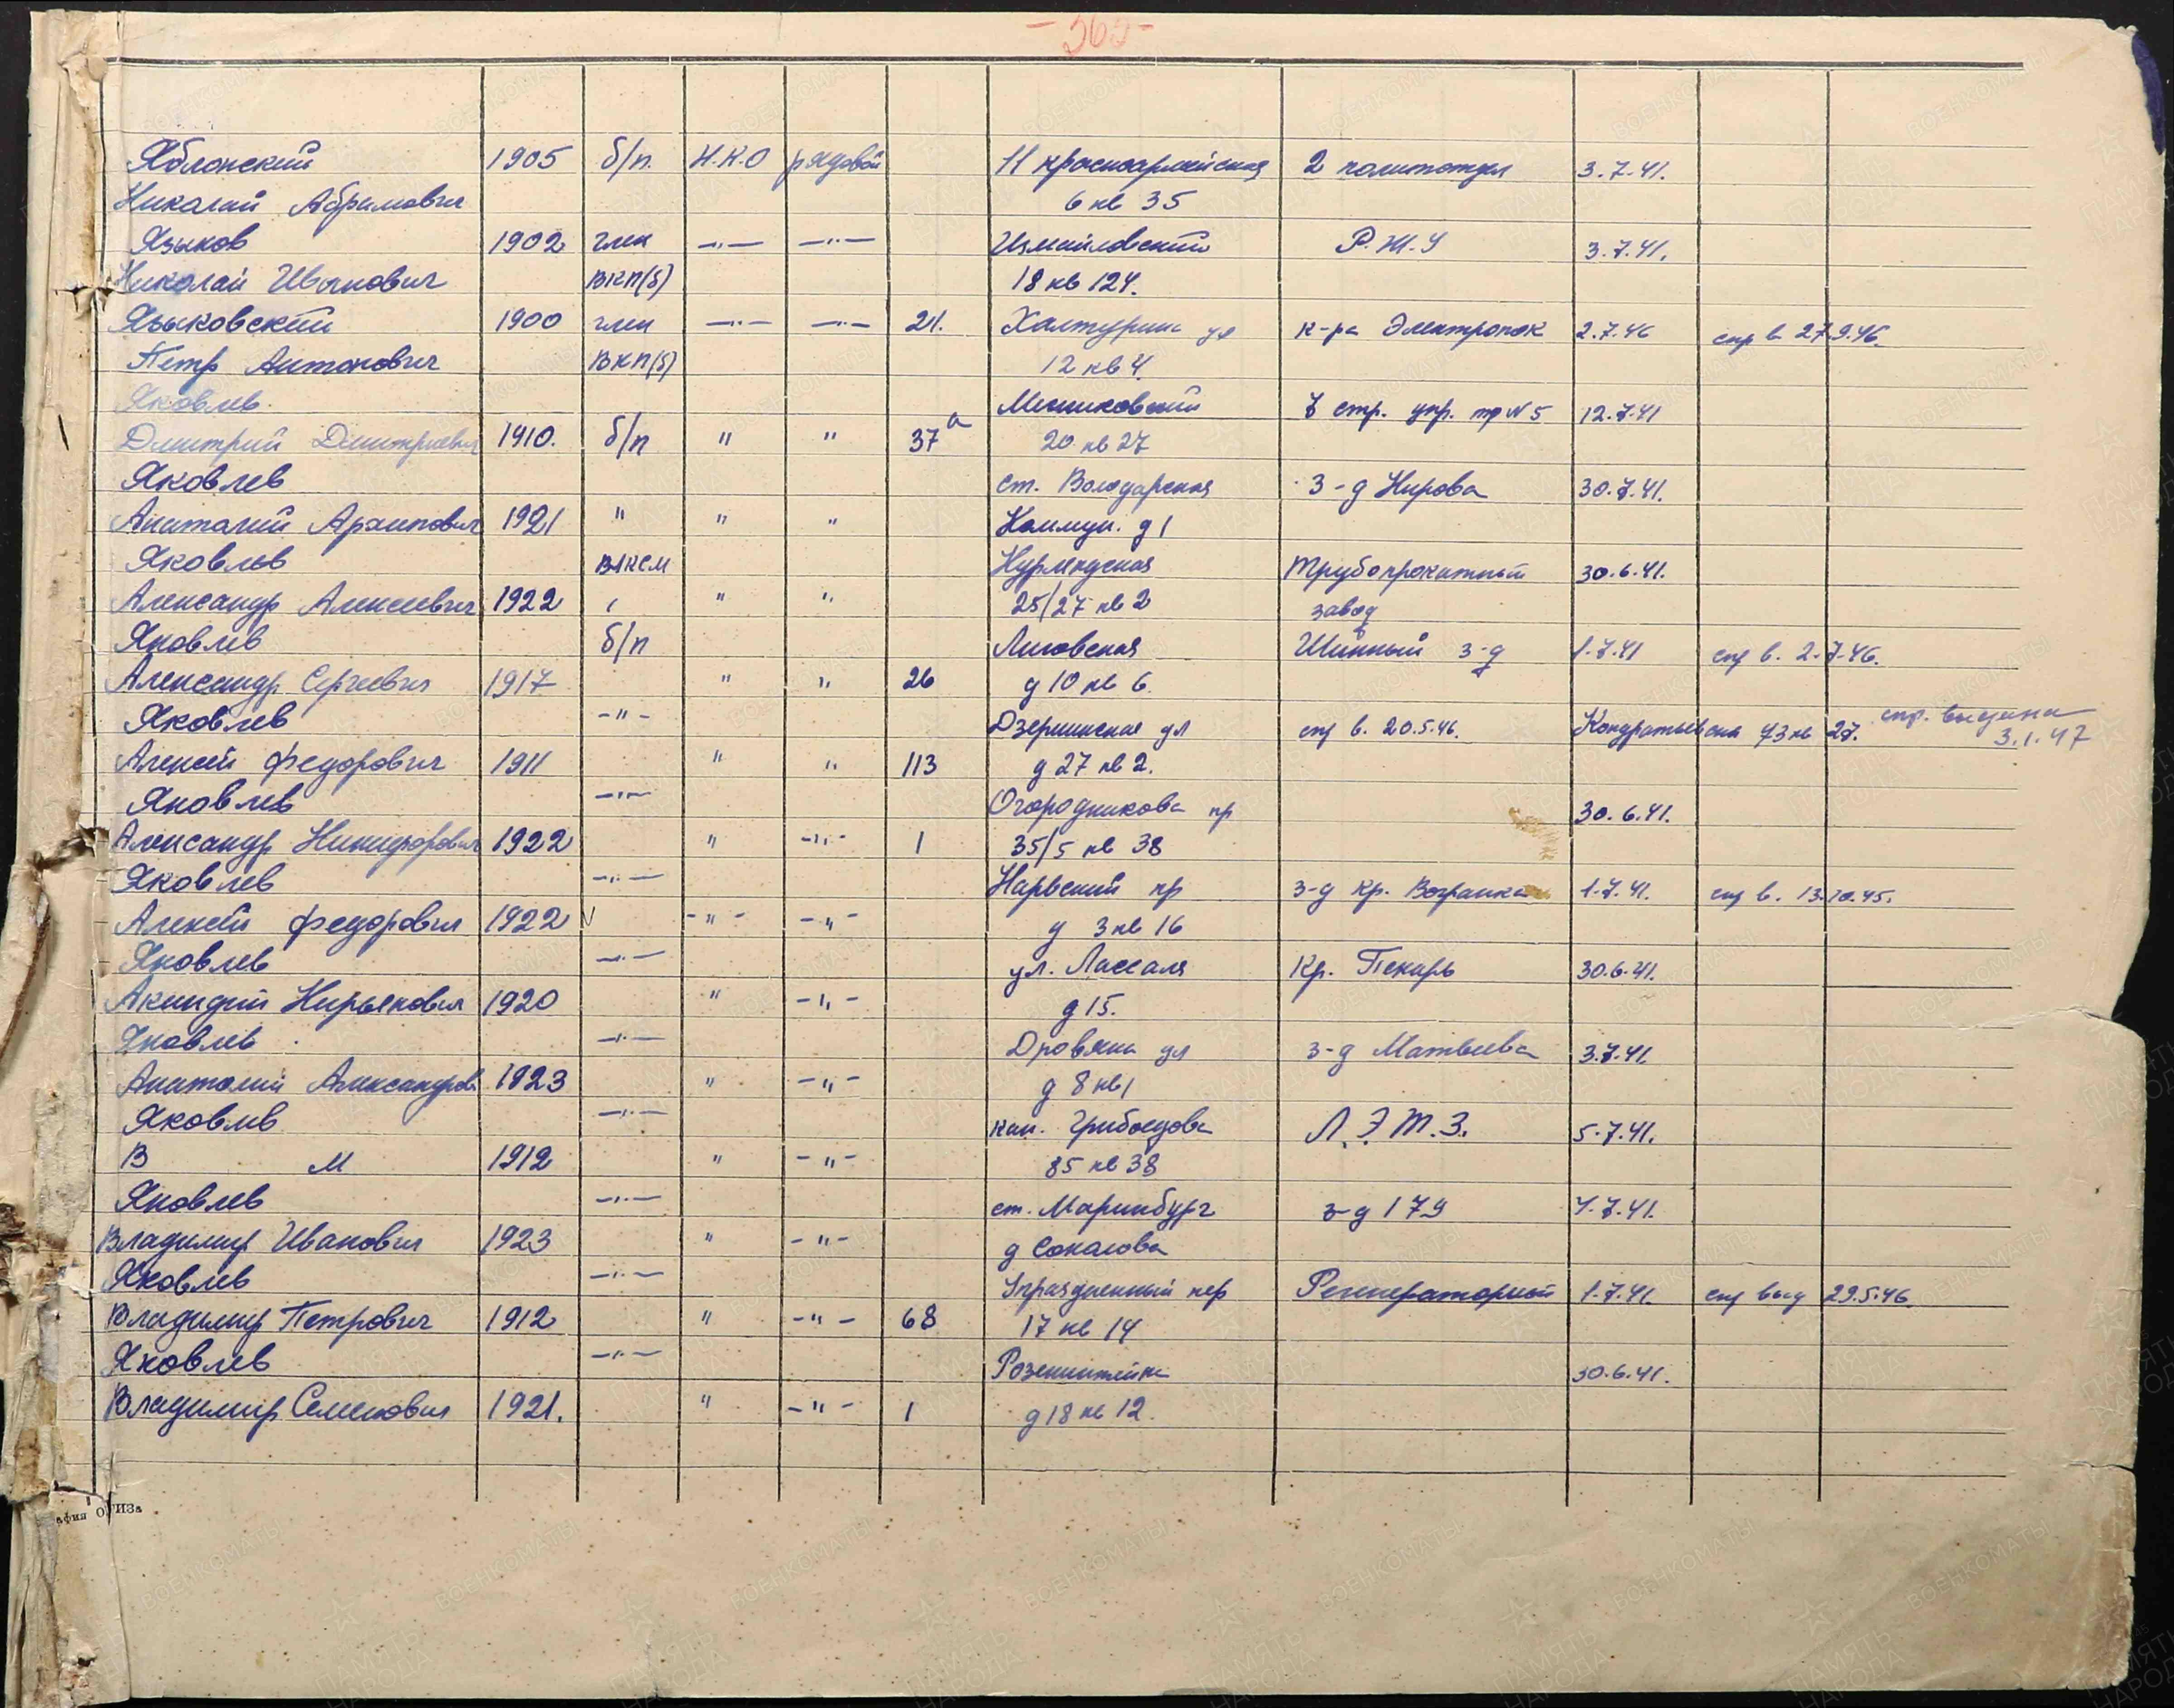 -365-
Яблонский 1905 б/п. Н.К.О рядовой 11 красноармейская 2 политотдел 3.7.41.
Николай Абрамович 6 кв 35
Языков 1902 член —"— —"— Измайловский Р.Ж.У 3.7.41.
Николай Иванович ВКП(б) 18 кв 124.
Языковский 1900 член —"— —"— 21. Халтурина ул к-ра Электроток 2.7.46 спр в 27.9.46.
Петр Антонович ВКП(б) 12 кв 4.
Яковлев. стр. упр. тр N 5 12.7.41
Дмитрий Дмитриевич 1910. б/п " " 37а 20 кв 27
Яковлев ст. Володарская З-д Кирова 30.7.41.
Анатолий Архипович 1921 " " " Коммун. д 1
Яковлев ВЛКСМ Курляндская Трубопрокатный 30.6.41.
Александр Алексеевич 1922 " " 25/27 кв 2 завод
Яковлев б/п Лиговская Шинный з-д 1.7.41 спр в. 2.7.46.
Александр Сергеевич 1917 " " 26 д 10 кв 6.
Яковлев -"- Дзержинская ул спр в. 20.5.46. Кондратьевская 43 кв 27. спр. выдана
3.1.47
Алексей Федорович 1911 " " 113 д 27 кв 2.
Яковлев —"— Огородникова пр 30.6.41.
Александр Никифорович 1922 " -"- 1 35/5 кв 38
Яковлев —"— Нарвский пр з-д Кр. 1.7.41. спр в. 13.10.45.
Алексей Федорович 1922 V -"- -"- д 3 кв 16
Яковлев —"— ул. Лассаля Кр. Пекарь 30.6.41.
Кирьянович 1920 " -"- д 15.
Яковлев —"— Дровяная ул з-д Матвеева 3.7.41.
Анатолий Александров 1923 " -"- д 8 кв 1
Яковлев —"— кан. Грибоедова Л.Э.Т.З. 5.7.41.
В М 1912 " -"- 85 кв 38
Яковлев —"— ст. Мариенбург з-д 179 4.7.41.
Владимир Иванович 1923 " -"- д Соколова
Яковлев —"— Упраздненный пер Регенераторный 1.7.41. спр выд 29.5.46.
Владимир Петрович 1912 " -"- 68 17 кв 14
Яковлев —"— Розенштейна 30.6.41.
Владимир Семенович 1921. " -"- 1 д 18 кв 12.
афия ОГИЗа